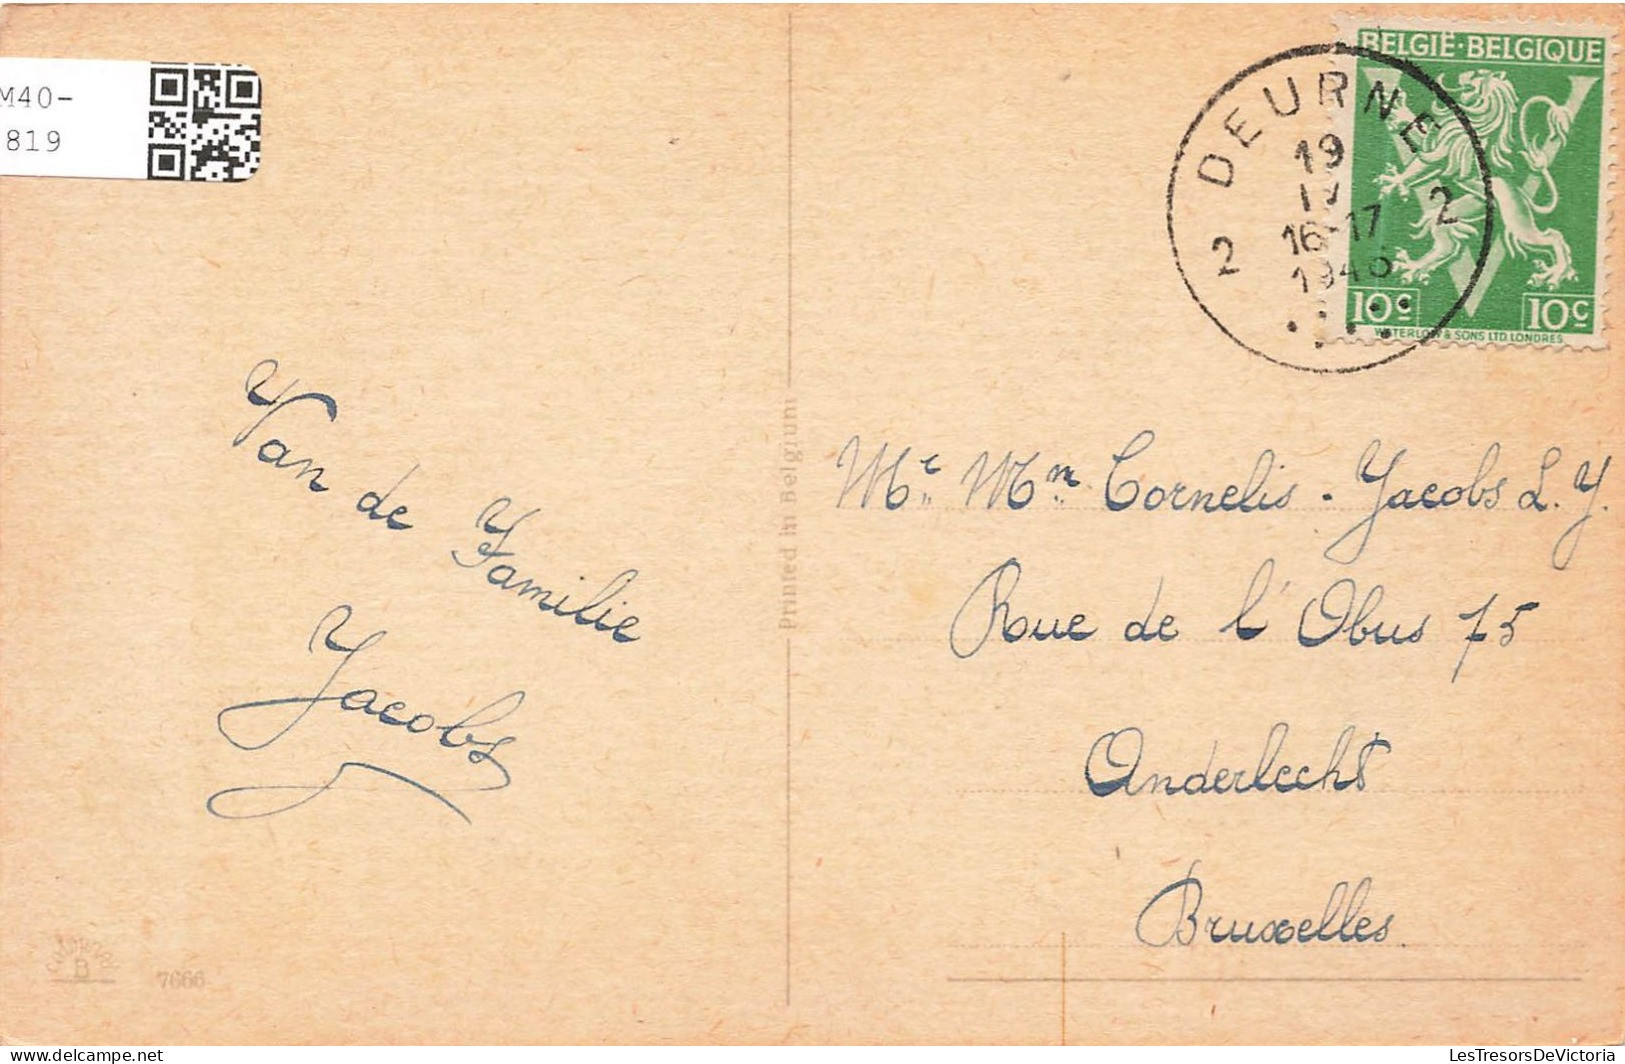 M40-
819
BELGIË·BELGIQUE
DEURNE
19
IV
16-17
2 2
10c 10c
WATERLOW & SONS LTD. LONDRES
Van de
Familie
Jacobs
Printed in Belgium
Mr Mm Cornelis - Jacobs L. J.
Rue de l'Obus 75
Anderlecht
Bruxelles
B
7666
LesTresorsDeVictoria